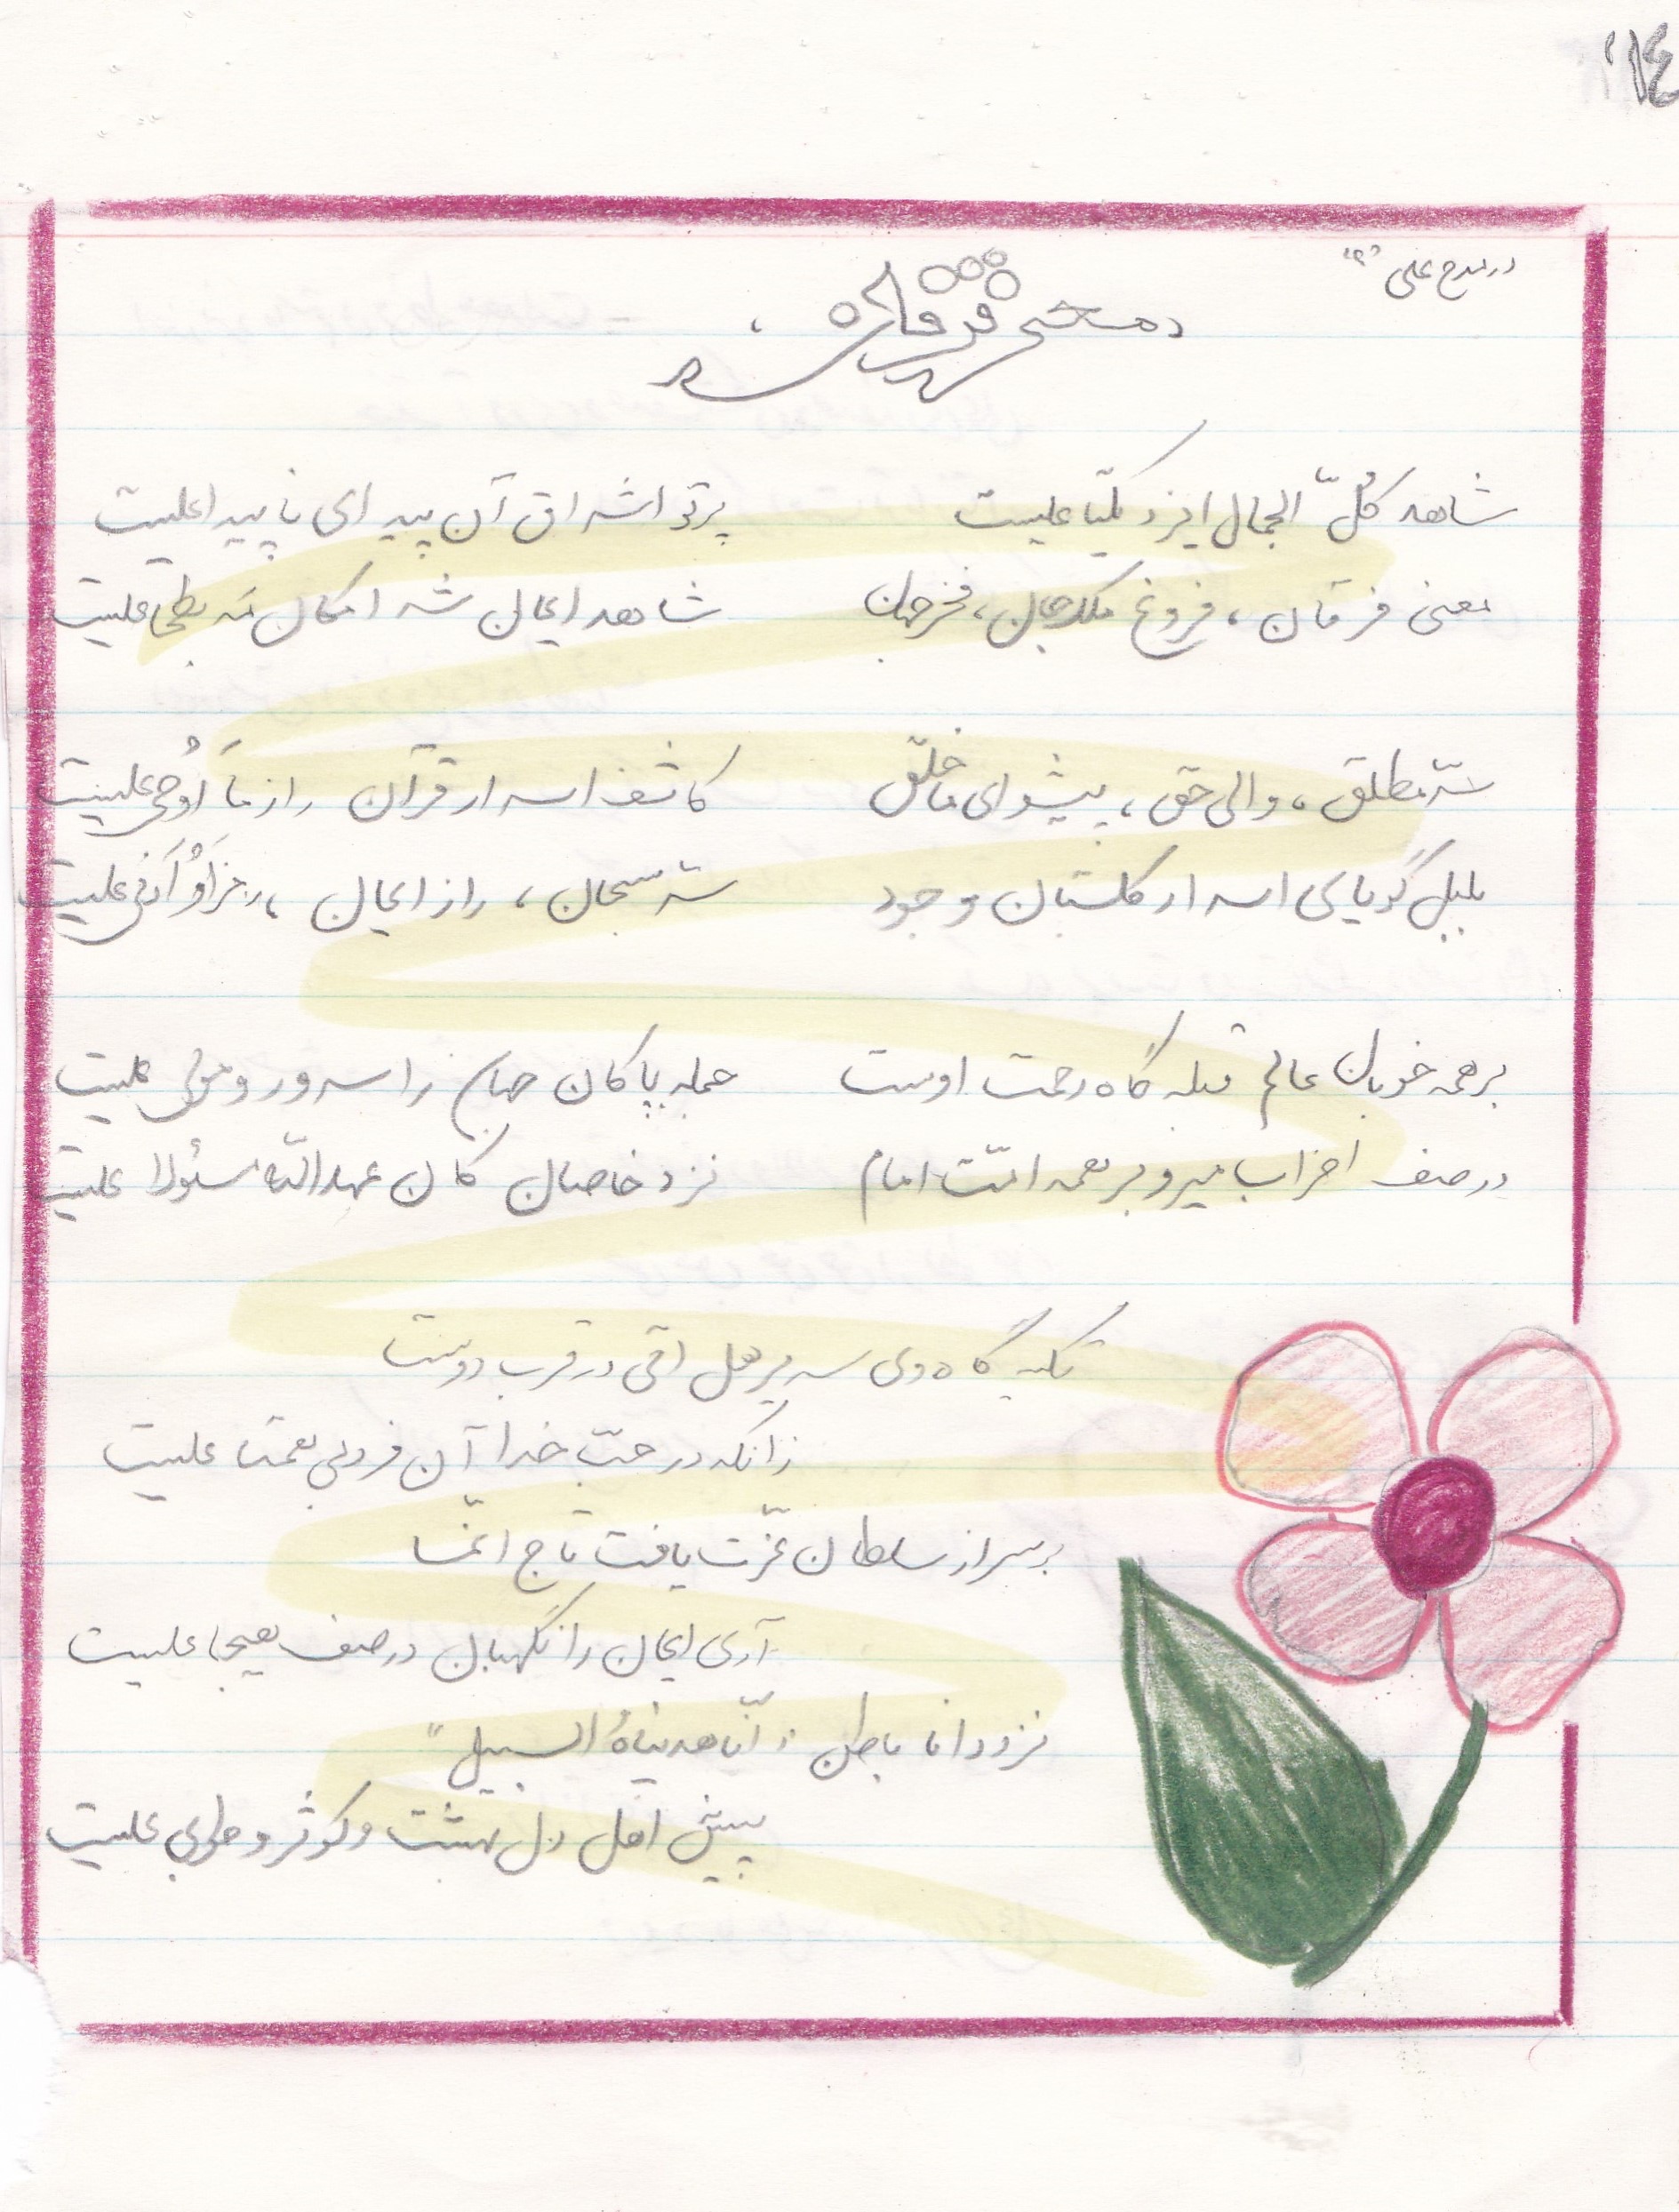 ۱۴
در مدح علی "ع"
«معنی فرقان»
شاهد کُلّ الجمال ایزد یکتا علیست پرتو اشراق آن پیدای ناپیدا علیست
معنی فرقان، فروغ ملک جان، فخر جهان شاهد ایمان شه امکان مه بطحا علیست
مطلق، والی حق، پیشوای ما خلق کاشف اسرار قرآن راز مَا اَوْحی علیست
بلبل گویای اسرار گلستان وجود سبحان، راز ایمان، رمز اَوْ اَدْنی علیست
بر همه خوبان عالم قبله گاه رحمت اوست جمله پاکان جهان را سرور و مولی علیست
در صف احزاب میر و بر همه امّت امام نزد خاصان کان عهد اللّه مسئولا علیست
تکیه گاه وی سریر هل اتی در قرب دوست
زانکه در حبّ خدا آن فرد بی همتا علیست
بر سر از سلطان عزّت یافت تاج انّما
آری ایمان را نگهبان در صف هیجا علیست
نزد دانا باطن "انّا هدیناهُ السبیل"
پیش اهل دل بهشت و کوثر و طوبی علیست